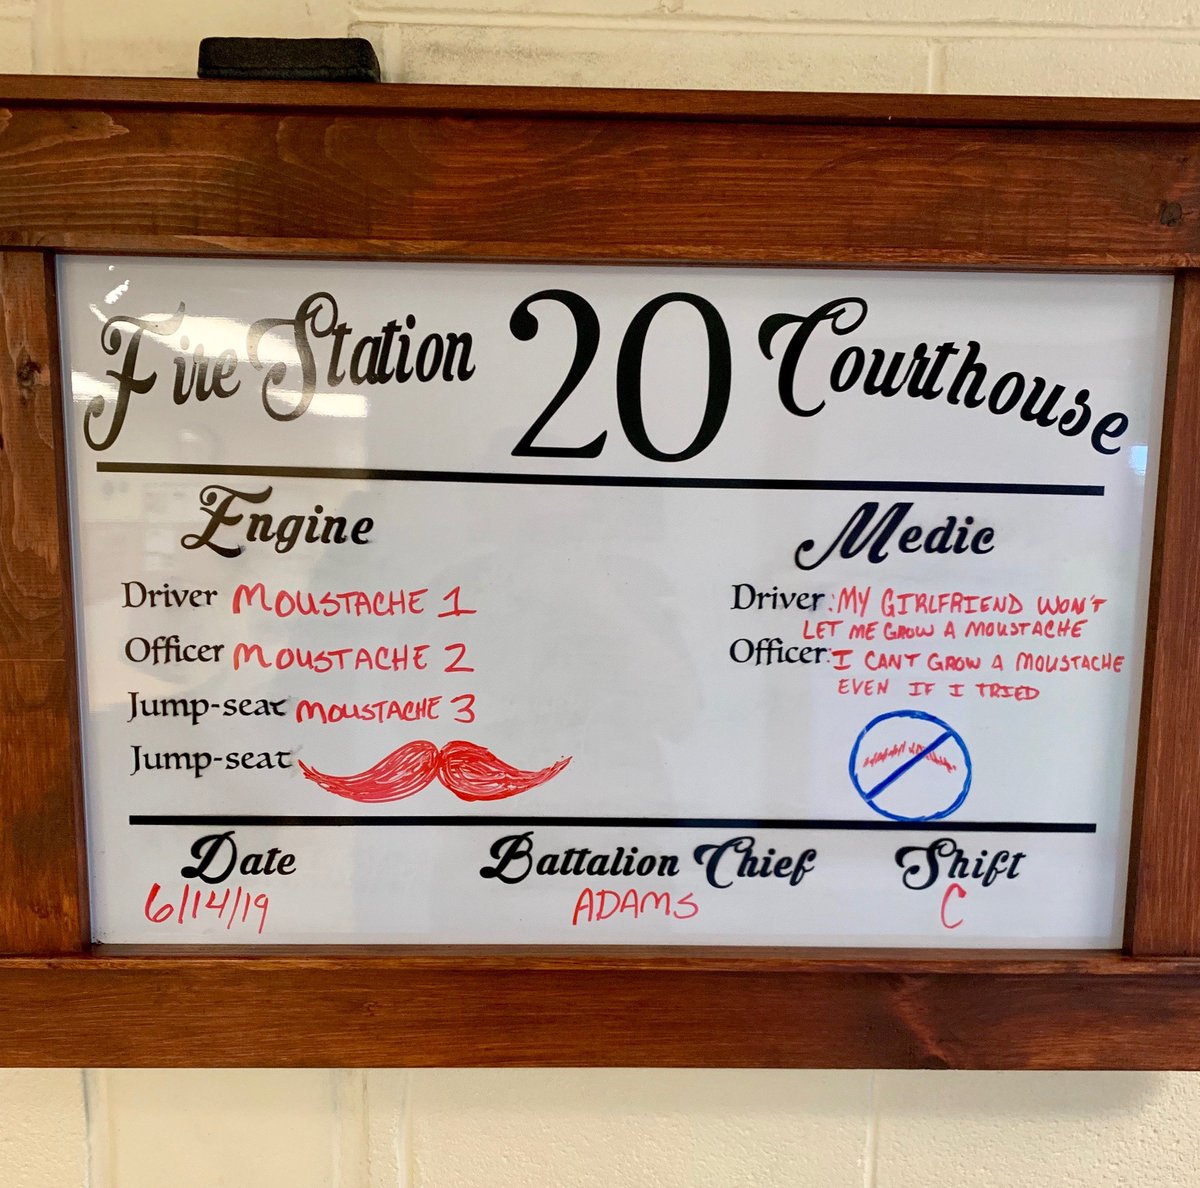 Fire Station 20 Courthouse
Engine
Driver MOUSTACHE 1
Officer MOUSTACHE 2
Jump-seat MOUSTACHE 3
Jump-seat
Medic
Driver: MY GIRLFRIEND WON'T
LET ME GROW A MOUSTACHE
Officer: I CANT GROW A MOUSTACHE
EVEN IF I TRIED
Date
6/14/19
Battalion Chief
ADAMS
Shift
C